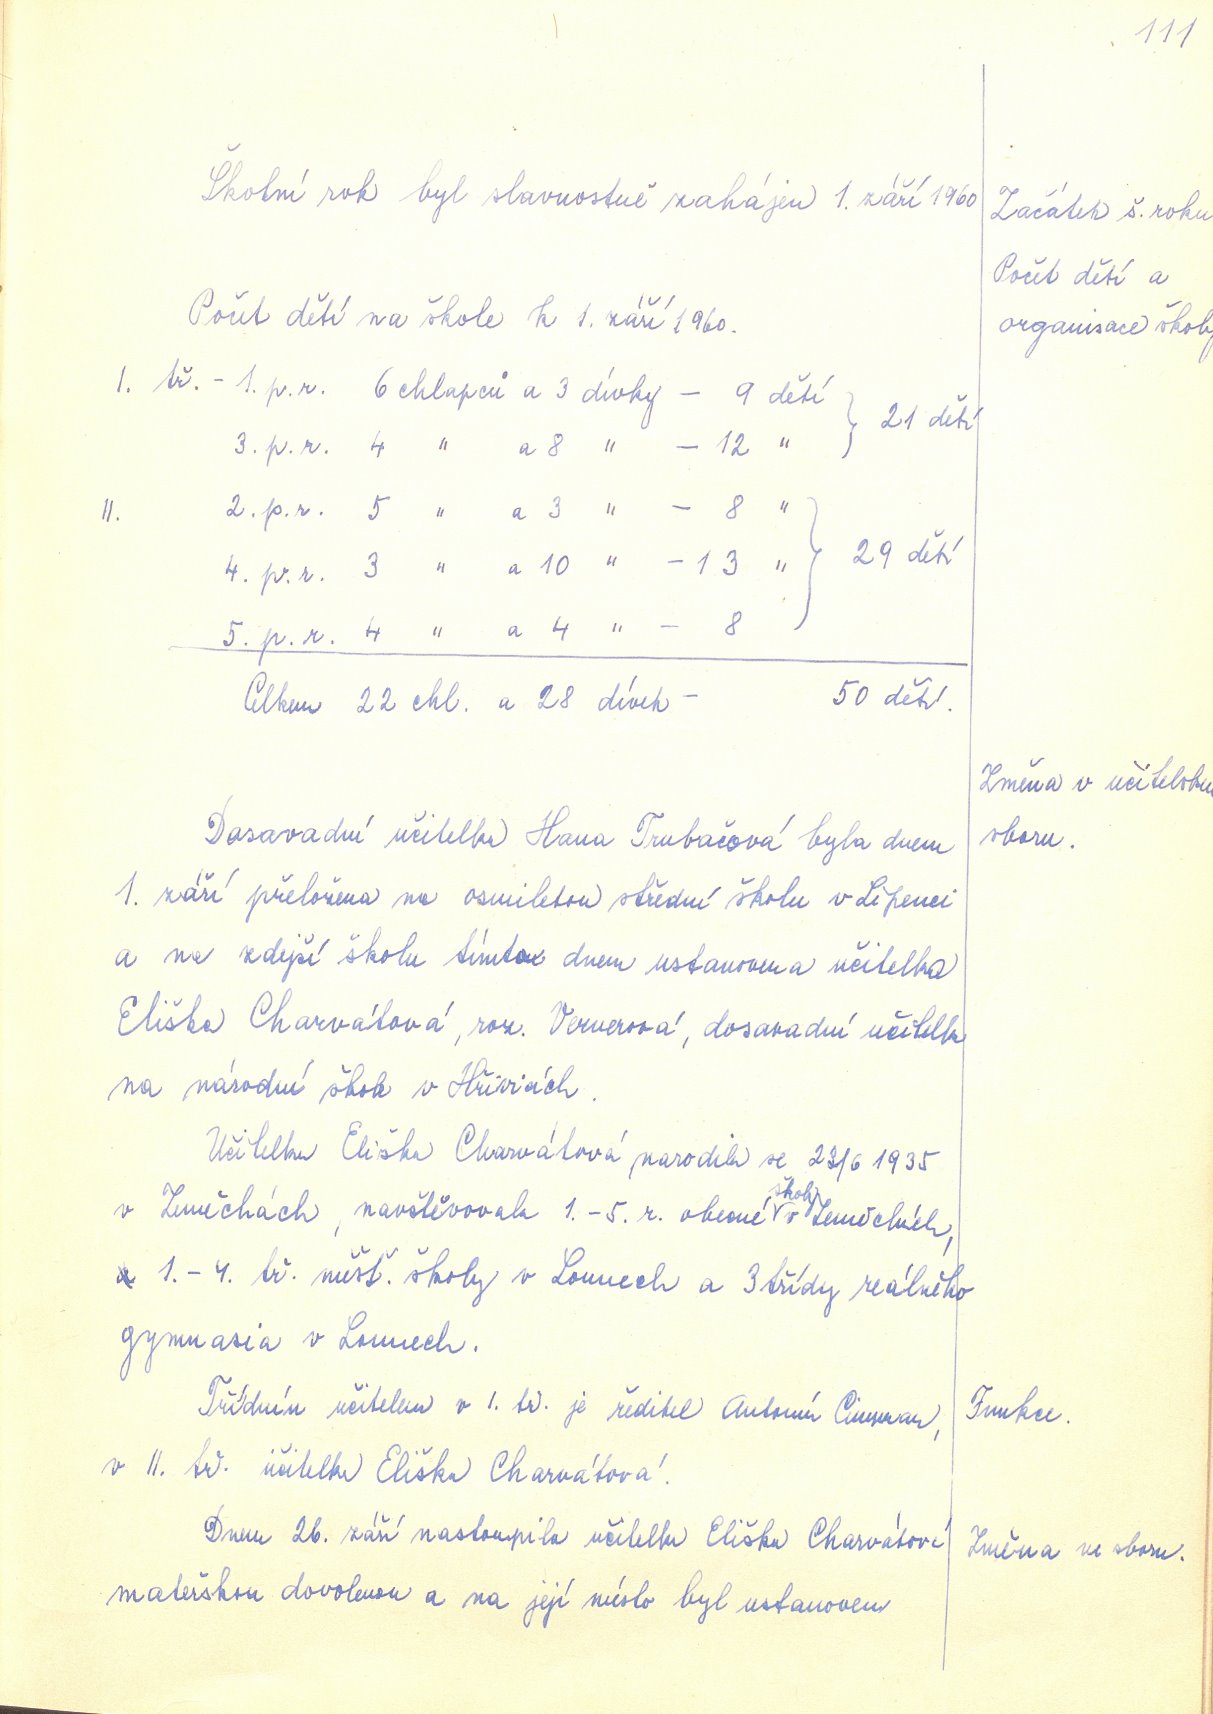 111
Školní rok byl slavnostně zahájen 1. září 1960
Začátek š. roku
Počet dětí a
organisace školy
Počet dětí na škole k 1. září 1960.
I. tř. - 1. p. r. 6 chlapců a 3 dívky - 9 dětí
3. p. r. 4 " a 8 " - 12 "
21 dětí
II. 2. p. r. 5 " a 3 " - 8 "
4. p. r. 3 " a 10 " - 13 "
29 dětí
5. p. r. 4 " a 4 " - 8
Celkem 22 chl. a 28 dívek - 50 dětí.
Změna v učitelském
sboru.
Dosavadní učitelka Hana Trubačová byla dnem
1. září přeložena na osmiletou střední školu v Lipenci
a na zdejší školu tímto dnem ustanovena učitelka
Eliška Charvátová, roz. Vernerová, dosavadní učitelka
na národní škole v Hřivicích.
Učitelka Eliška Charvátová narodila se 23/6 1935
v Zeměchách, navštěvovala 1.-5. r. obecné školy v Zeměchách,
1.-4. tř. měšť. školy v Lounech a 3 třídy reálného
gymnasia v Lounech.
Třídním učitelem v I. tř. je ředitel Antonín
Funkce.
v II. tř. učitelka Eliška Charvátová.
Dnem 26. září nastoupila učitelka Eliška Charvátová
Změna ve sboru.
mateřskou dovolenou a na její místo byl ustanoven